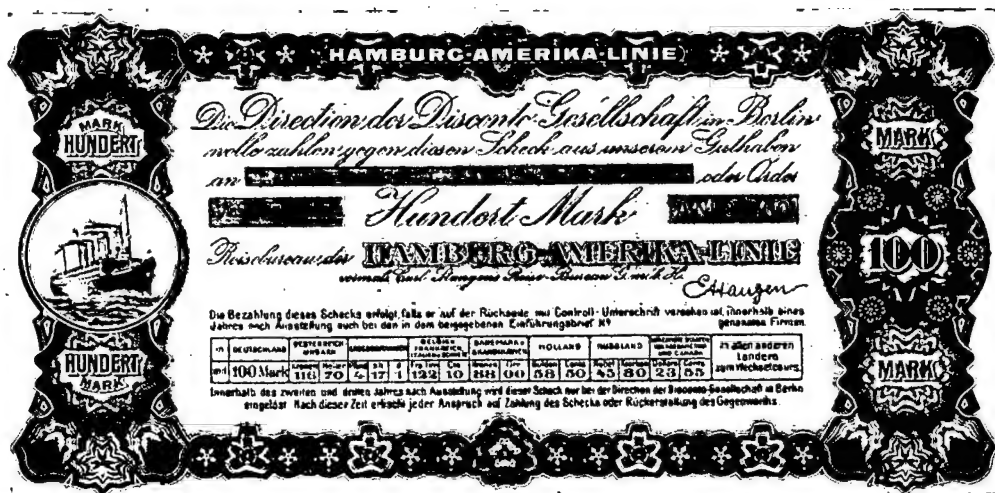 HAMBURG-AMERIKA-LINIE
MARK
HUNDERT
MARK
Die Direction der Disconto-Gesellschaft in Berlin
wolle zahlen gegen diesen Scheck aus unserem Guthaben
an oder Order
Hundert Mark
100
Reisebureau der HAMBURG-AMERIKA-LINIE
vormals Carl Stangens Reise-Bureau G.m.b.H.
CStangen
Die Bezahlung dieses Schecks erfolgt, falls er auf der Rückseite mit Controll-Unterschrift versehen ist, innerhalb eines
Jahres nach Ausstellung auch bei den in dem beigegebenen Einführungsbrief Nº genannten Firmen.
in DEUTSCHLAND OESTERREICH UNGARN BELGIEN FRANKREICH ITALIEN SCHWEIZ DAENEMARK SKANDINAVIEN HOLLAND RUSSLAND UND CANADA in allen anderen
Ländern
100 Mark 116 70 4 17 1 123 10 88 00 58 50 45 80 23 55 zum Wechselcours
Innerhalb des zweiten und dritten Jahres nach Ausstellung wird dieser Scheck nur bei der Direction der Disconto-Gesellschaft in Berlin
eingelöst. Nach dieser Zeit erlischt jeder Anspruch auf Zahlung des Schecks oder Rückerstattung des Gegenwerths.
HUNDERT
MARK
MARK